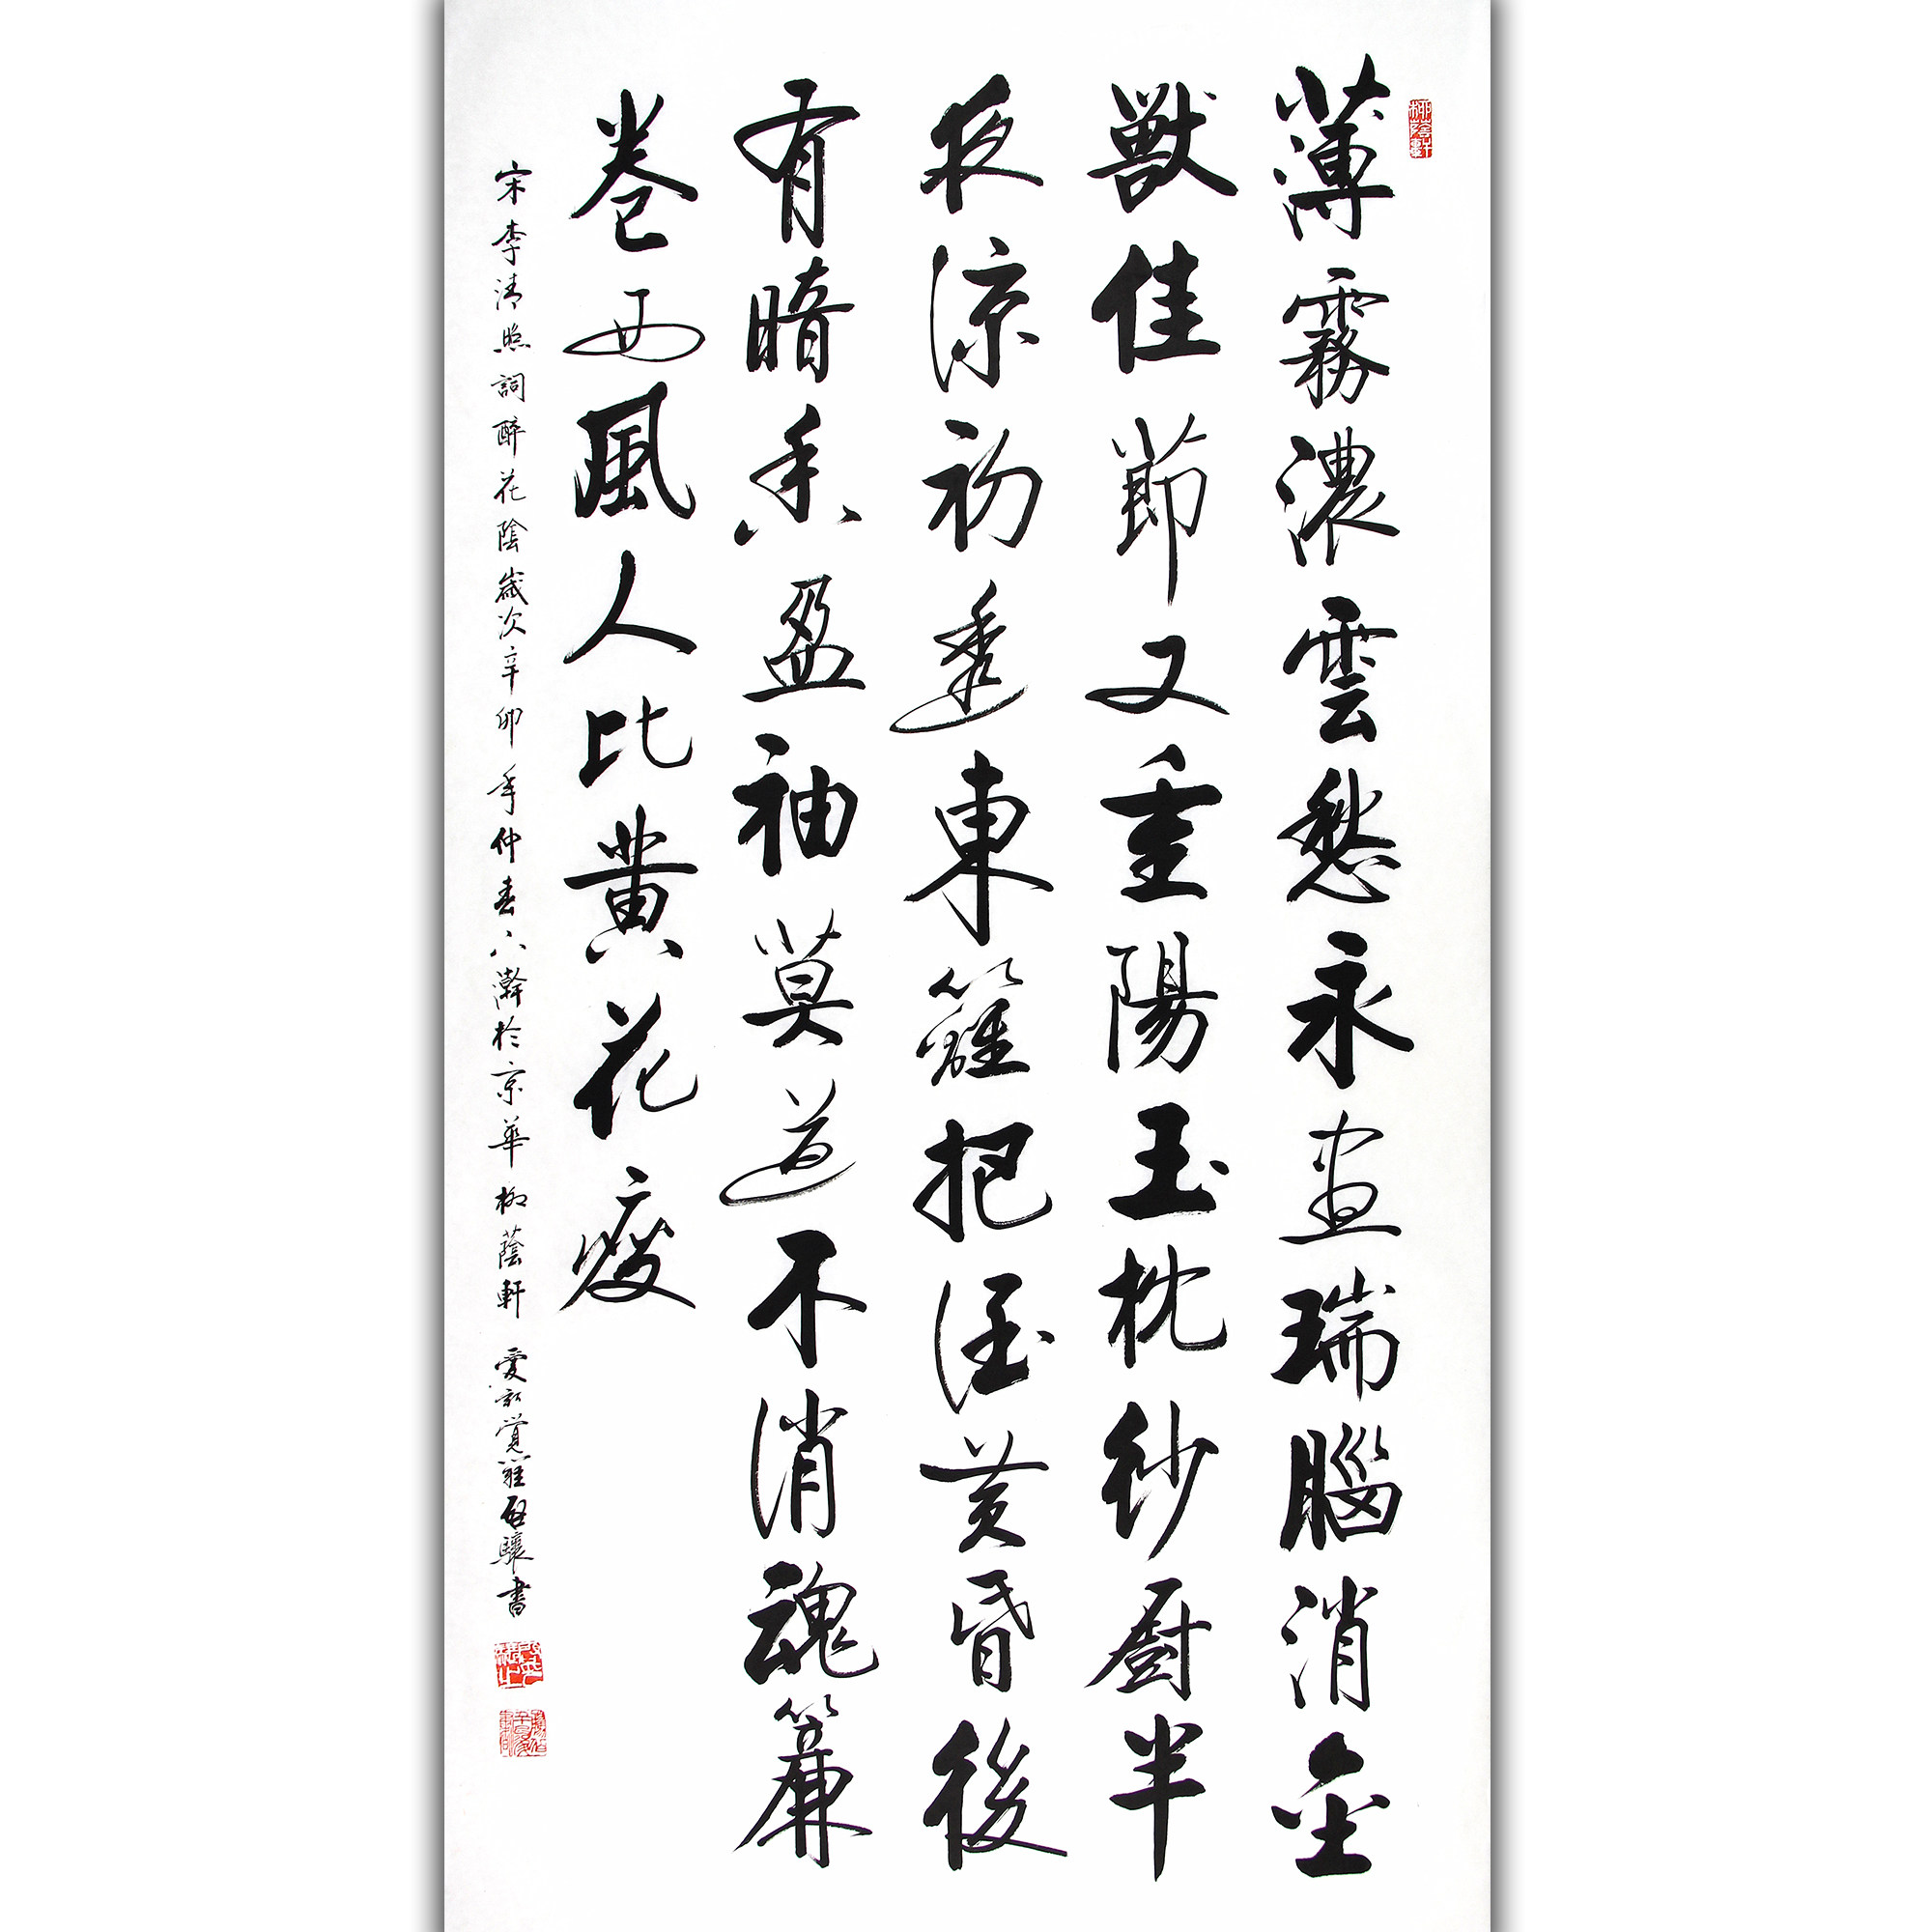 薄霧濃雲愁永晝瑞腦消金
獸佳節又重陽玉枕紗厨半
夜涼初透東籬把酒黄昏後
有暗香盈袖莫道不消魂簾
卷西風人比黄花瘦
宋李清照詞醉花陰歲次辛卯年仲春六瀚於京華柳蔭軒愛新覺羅啟驤書